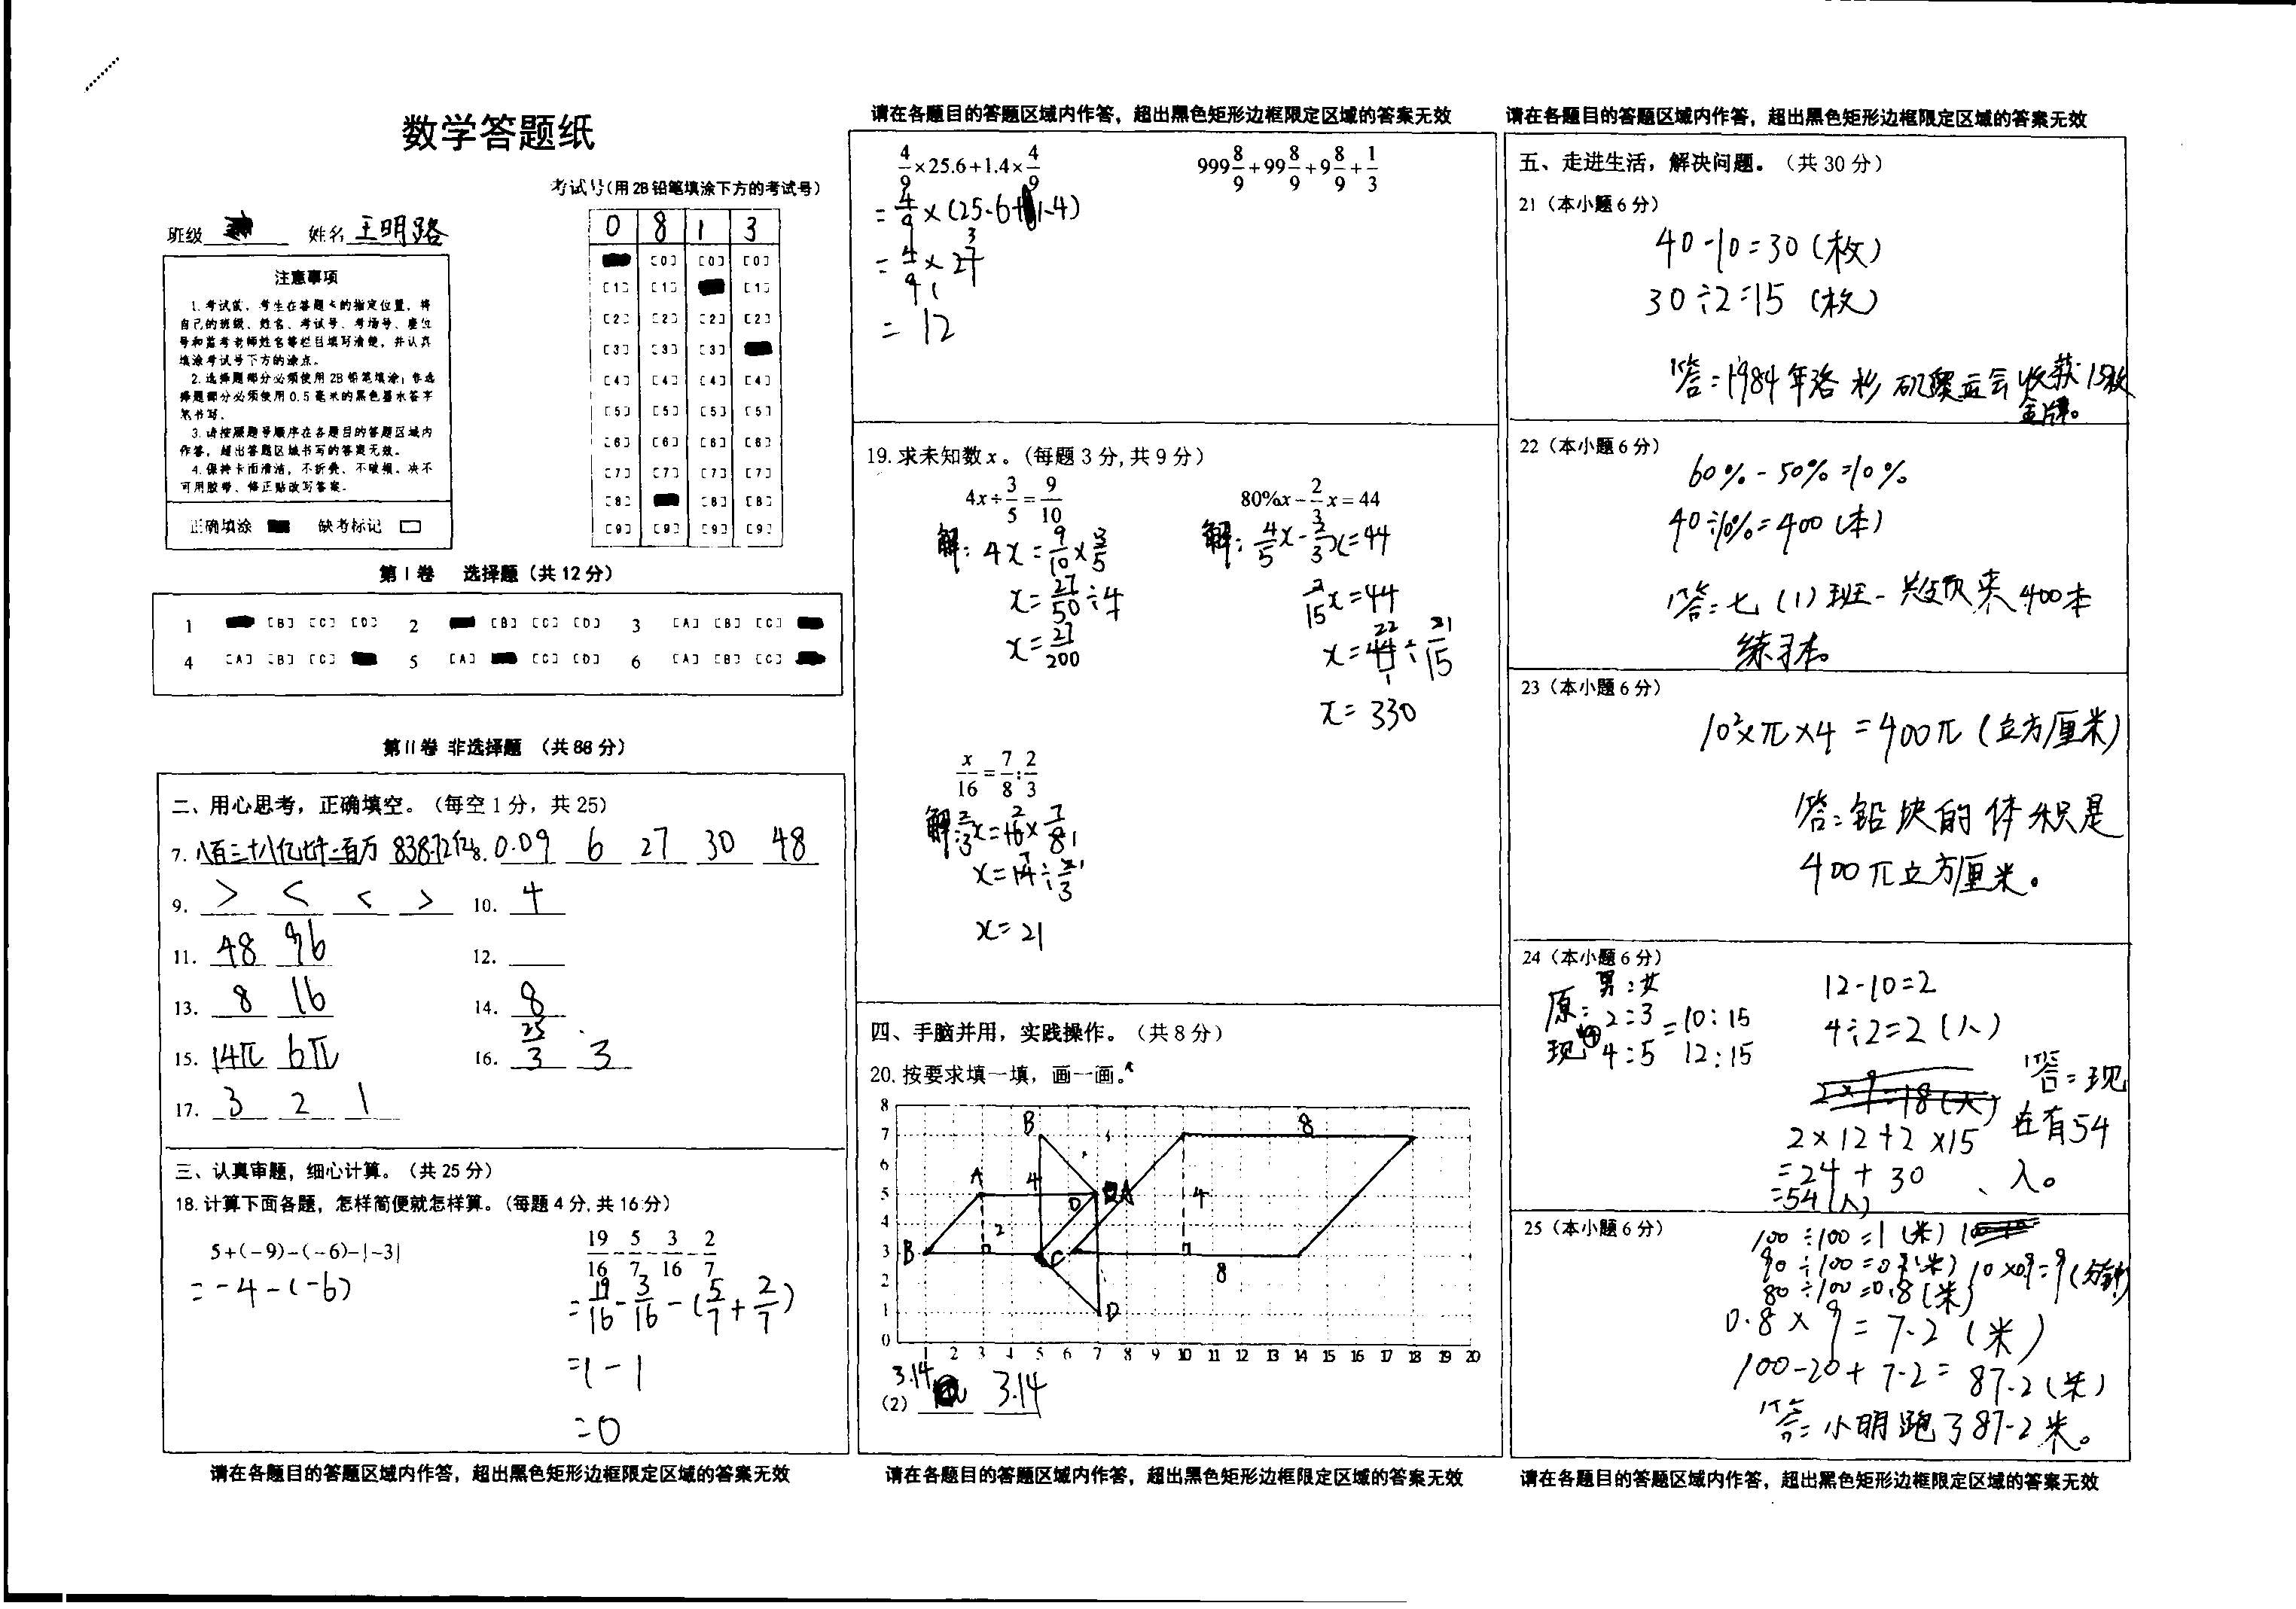 数学答题纸
考试号(用2B铅笔填涂下方的考试号)
班级 姓名 王明路
0 8 1 3
注意事项
1.考试前,考生在答题卡的指定位置,将
自己的班级、姓名、考试号、考场号、座位
号和监考老师姓名等栏目填写清楚,并认真
填涂考试号下方的涂点。
2.选择题部分必须使用2B铅笔填涂;非选
择题部分必须使用0.5毫米的黑色墨水签字
笔书写。
3.请按照题号顺序在各题目的答题区域内
作答,超出答题区域书写的答案无效。
4.保持卡面清洁,不折叠、不破损。决不
可用胶带、修正贴改写答案。
正确填涂 缺考标记
[0] [0] [0]
[1] [1] [1]
[2] [2] [2] [2]
[3] [3] [3]
[4] [4] [4] [4]
[5] [5] [5] [5]
[6] [6] [6] [6]
[7] [7] [7] [7]
[8] [8] [8]
[9] [9] [9] [9]
第Ⅰ卷 选择题(共12分)
1 [B] [C] [D] 2 [B] [C] [D] 3 [A] [B] [C]
4 [A] [B] [C] 5 [A] [C] [D] 6 [A] [B] [C]
第Ⅱ卷 非选择题 (共88分)
二、用心思考,正确填空。(每空1分,共25)
7. 八百三十八亿七千二百万 838.72亿 8. 0.09 6 27 30 48
9. > < < > 10. 4
11. 48 96 12.
13. 8 16 14. 8
15. 14π 6π 16. 25/3 3
17. 3 2 1
三、认真审题,细心计算。(共25分)
18.计算下面各题,怎样简便就怎样算。(每题4分,共16分)
5+(-9)-(-6)-|-3| 19/16-5/7-3/16-2/7
=-4-(-6) =19/16-3/16-(5/7+2/7)
=1-1
=0
请在各题目的答题区域内作答,超出黑色矩形边框限定区域的答案无效
请在各题目的答题区域内作答,超出黑色矩形边框限定区域的答案无效
4/9×25.6+1.4×4/9 999 8/9+99 8/9+9 8/9+1/3
=4/9×(25.6+1.4)
=4/9×27 3
1
=12
19.求未知数x。(每题3分,共9分)
4x÷3/5=9/10 80%x-2/3x=44
解:4x=9/10×3/5 解:4/5x-2/3x=44
x=27/50÷4 2/15x=44
x=27/200 x=44÷2/15 22 1 1
x=330
x/16=7/8:2/3
解:2/3x=16×7/8 2 1
x=14÷2/3 7 1
x=21
四、手脑并用,实践操作。(共8分)
20.按要求填一填,画一画。
8
7 B 8
6
5 A 4 D A 4
4 2
3 B C 8
2
1 D
0 1 2 3 4 5 6 7 8 9 10 11 12 13 14 15 16 17 18 19 20
(2) 3.14 3.14
请在各题目的答题区域内作答,超出黑色矩形边框限定区域的答案无效
请在各题目的答题区域内作答,超出黑色矩形边框限定区域的答案无效
五、走进生活,解决问题。(共30分)
21(本小题6分)
40-10=30(枚)
30÷2=15(枚)
答:1984年洛杉矶奥运会收获15枚
金牌。
22(本小题6分)
60%-50%=10%
40÷10%=400(本)
答:七(1)班一共领来400本
练习本。
23(本小题6分)
10²×π×4=400π(立方厘米)
答:铅块的体积是
400π立方厘米。
24(本小题6分)
男:女 12-10=2
原:2:3=10:15 4÷2=2(人)
现 4:5 12:15
2×9=18(人)
2×12+2×15
=24+30
=54(人)
答:现
在有54
人。
25(本小题6分)
100÷100=1(米)
90÷100=0.9(米) 10×0.9=9(分钟)
80÷100=0.8(米)
0.8×9=7.2(米)
100-20+7.2=87.2(米)
答:小明跑了87.2米。
请在各题目的答题区域内作答,超出黑色矩形边框限定区域的答案无效